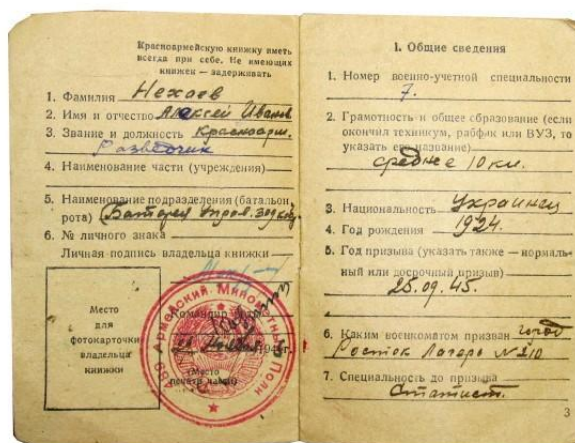 Красноармейскую книжку иметь
всегда при себе. Не имеющих
книжек — задерживать
1. Фамилия Нехаев
2. Имя и отчество Алексей Иванов.
3. Звание и должность Красноарм.
Разведчик
4. Наименование части (учреждения)
5. Наименование подразделения (батальон,
рота) Батарея упр.
6. № личного знака
Личная подпись владельца книжки
Командир части
Место
для
фотокарточки
владельца
книжки
(Место
печати части)
Армейский Минометный Полк
I. Общие сведения
1. Номер военно-учетной специальности
7.
2. Грамотность и общее образование (если
окончил техникум, рабфак или ВУЗ, то
указать его название)
среднее 10 кл.
3. Национальность Украинец
4. Год рождения 1924.
5. Год призыва (указать также — нормаль-
ный или досрочный призыв)
25.09.45.
6. Каким военкоматом призван город
Росток Лагерь № 210
7. Специальность до призыва
Статист.
3